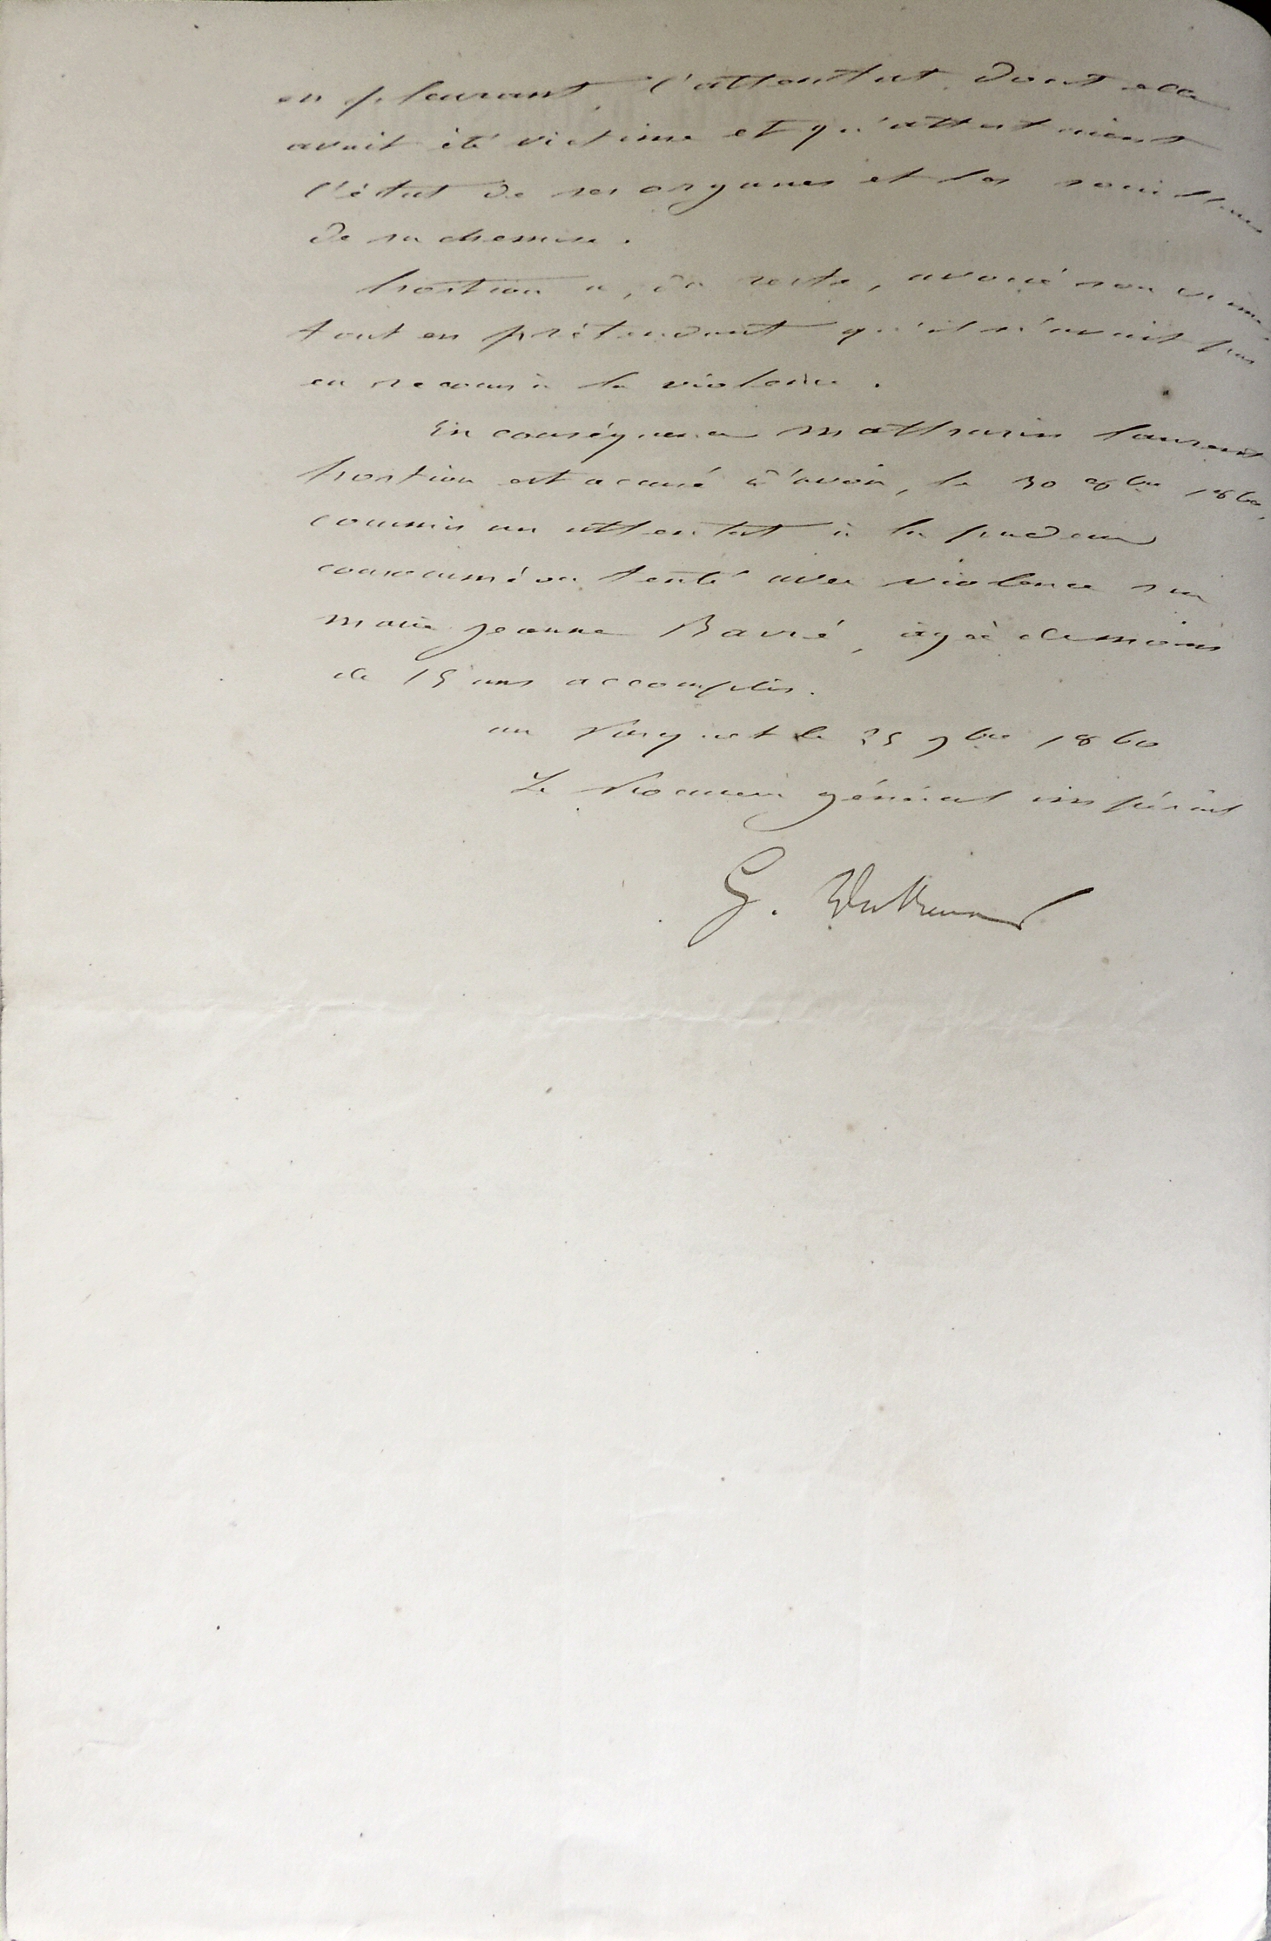 en pleurant, l'attentat dont elle
avait été victime et qu'attestaient
l'état de ses organes et les souillures
de sa chemise.
a, du reste, avoué son crime
tout en prétendant qu'il n'avait pas
eu recours à la violence.
En conséquence Mathurin Laurent
est accusé d'avoir, le 30 8bre 1860,
commis un attentat à la pudeur
consommé ou tenté avec violence sur
Marie Jeanne âgée de moins
de 15 ans accomplis.
au Parquet le 25 9bre 1860
Le Procureur général impérial
G.